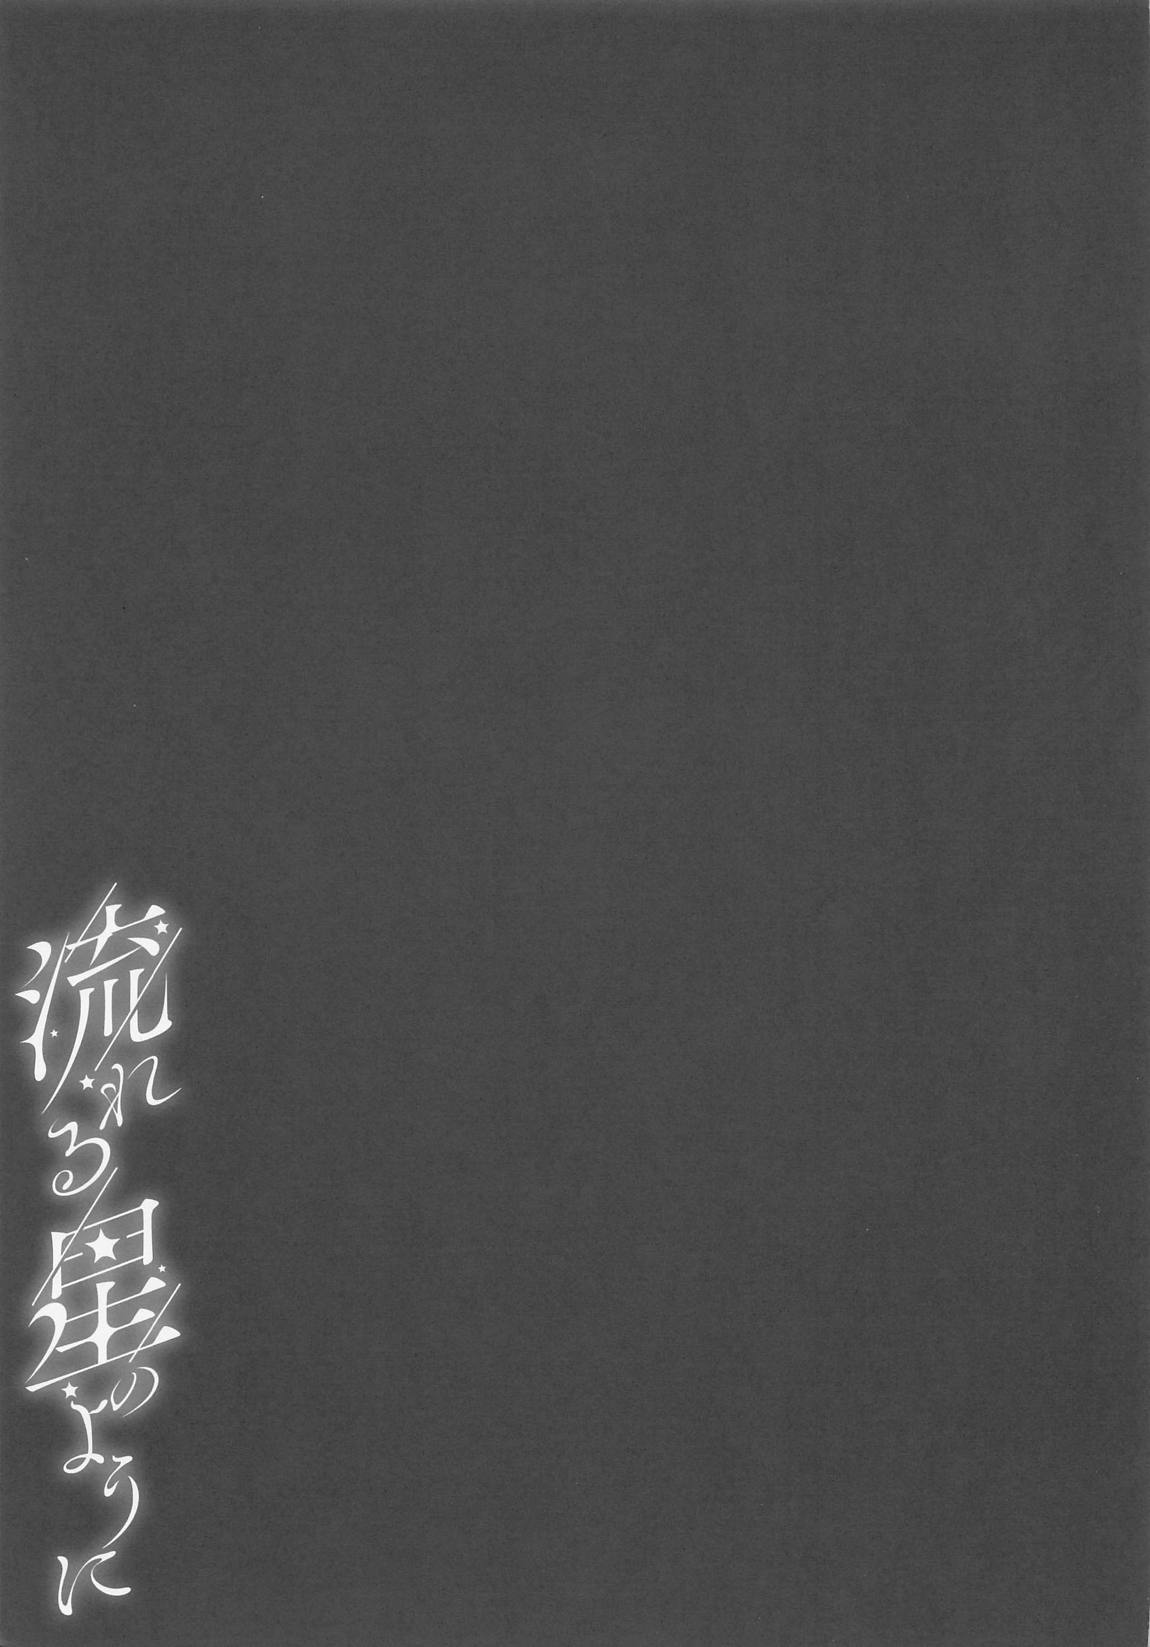 流れる星のように